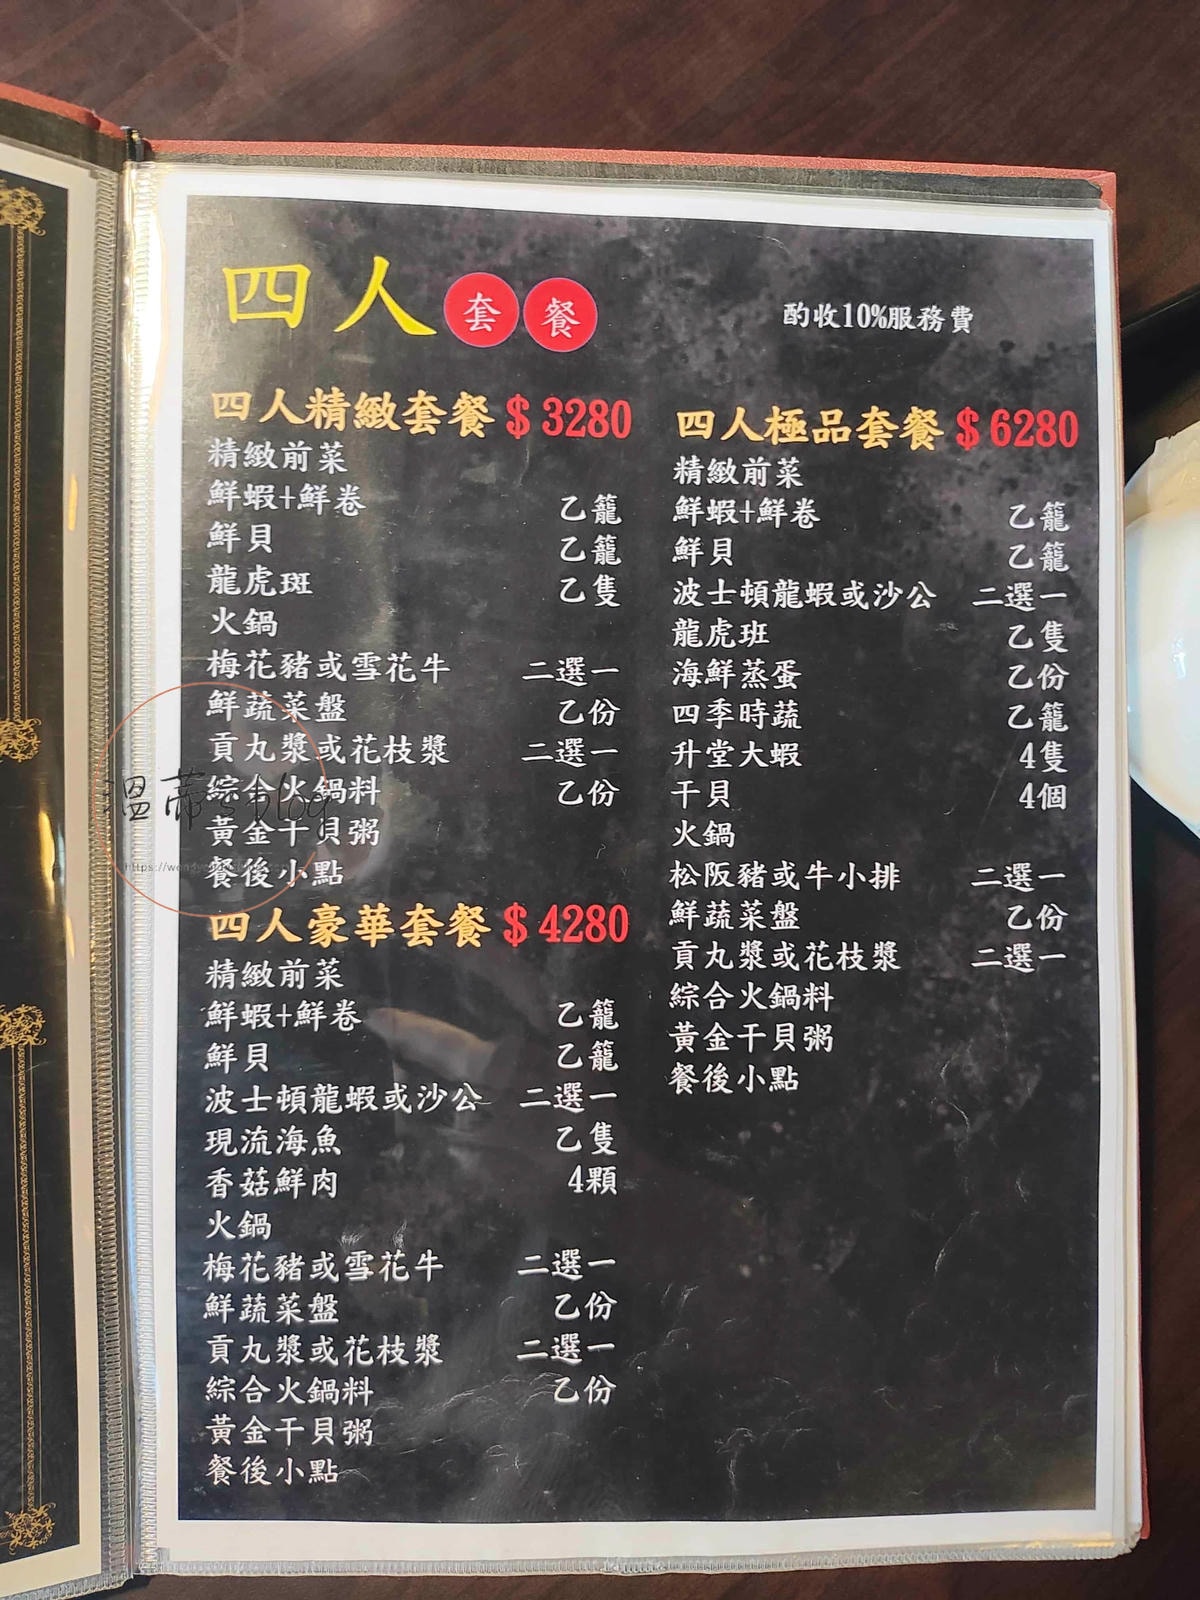 四人套餐
酌收10%服務費
四人精緻套餐 $3280
精緻前菜
鮮蝦+鮮卷 乙籠
鮮貝 乙籠
龍虎斑 乙隻
火鍋
梅花豬或雪花牛 二選一
鮮蔬菜盤 乙份
貢丸漿或花枝漿 二選一
綜合火鍋料 乙份
黃金干貝粥
餐後小點
四人豪華套餐 $4280
精緻前菜
鮮蝦+鮮卷 乙籠
鮮貝 乙籠
波士頓龍蝦或沙公 二選一
現流海魚 乙隻
香菇鮮肉 4顆
火鍋
梅花豬或雪花牛 二選一
鮮蔬菜盤 乙份
貢丸漿或花枝漿 二選一
綜合火鍋料 乙份
黃金干貝粥
餐後小點
四人極品套餐 $6280
精緻前菜
鮮蝦+鮮卷 乙籠
鮮貝 乙籠
波士頓龍蝦或沙公 二選一
龍虎班 乙隻
海鮮蒸蛋 乙份
四季時蔬 乙籠
升堂大蝦 4隻
干貝 4個
火鍋
松阪豬或牛小排 二選一
鮮蔬菜盤 乙份
貢丸漿或花枝漿 二選一
綜合火鍋料
黃金干貝粥
餐後小點
blog